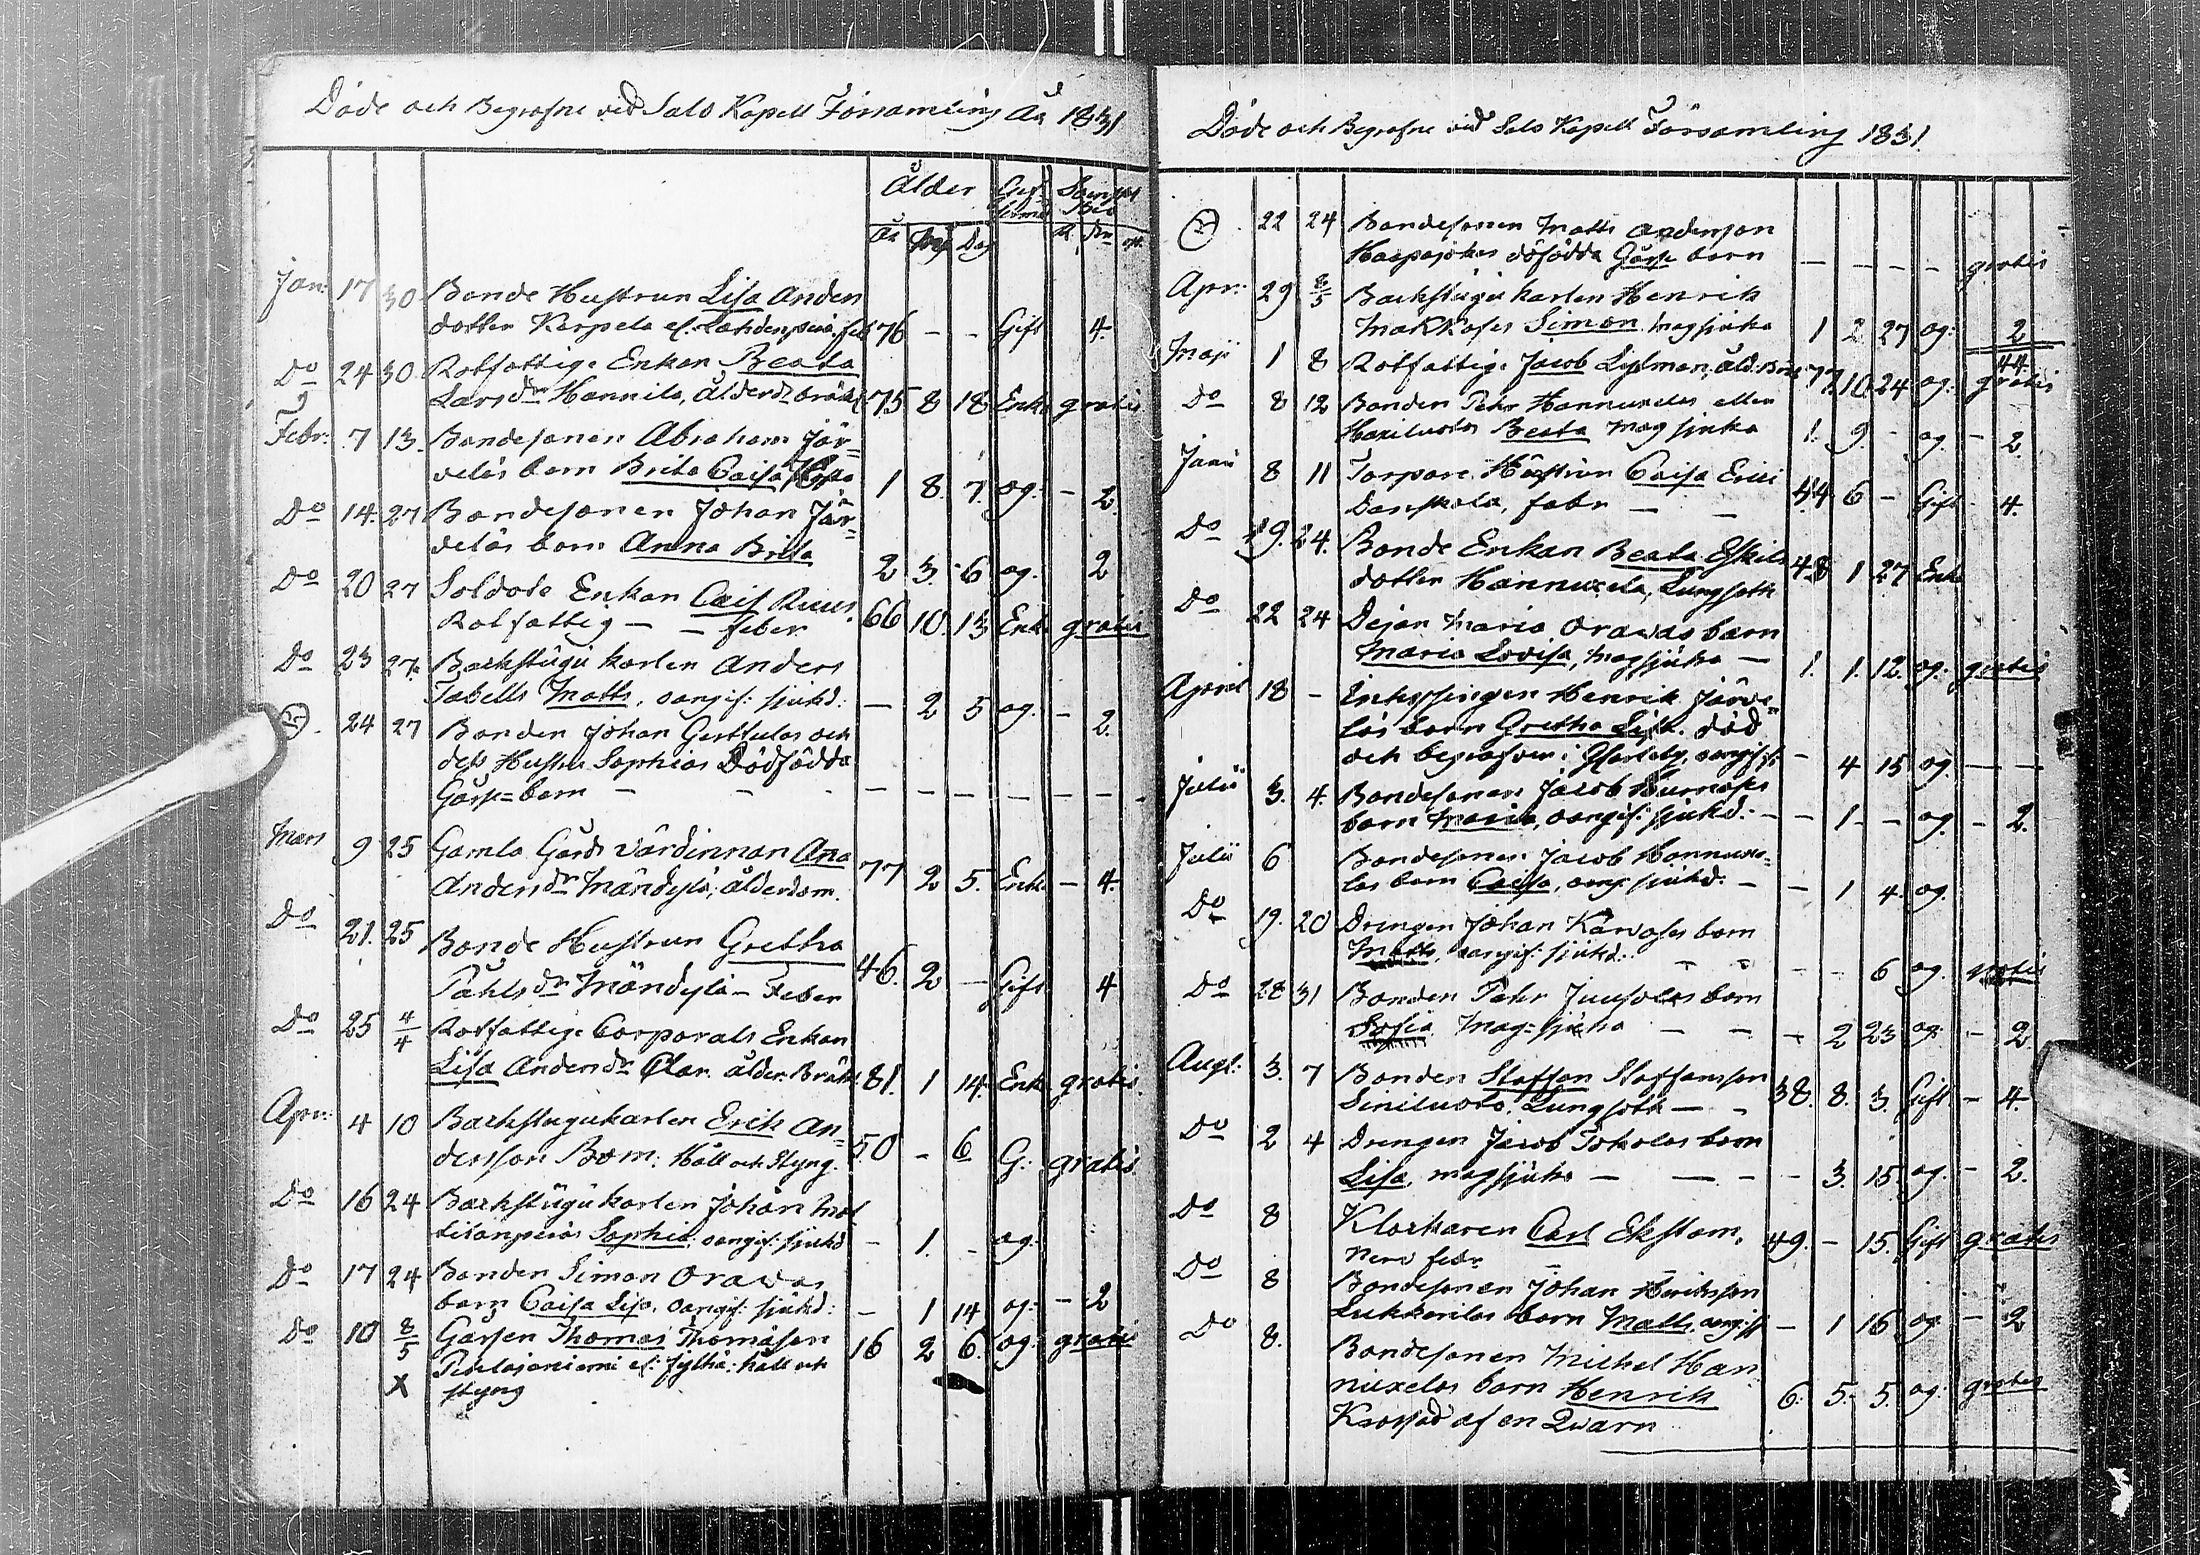 Döde och Begrafne vid Salo Kapell Församling År 1831
Ålder
År Dag
Jan: 17 30 Bonde Hustrun Lisa Anders
dotter Kerpela af 76 - - Gift 4.
Do 24 30 Rotfattige Enkan Beata
Larsdr Hannila, Ålderd. bräckl 75 8 18 Enk gratis
Febr: 7 13. Bondesonen Abraham Jär-
veläs barn Brita Caisa 1 8. 7 og. - 2.
Do 14. 27 Bondesonen Johan Jär-
veläs barn Anna Brita 2 3. 6 og. 2
Do 20 27 Soldate Enkan Caisa
Rotfattig - - feber 66 10. 13 Enk. gratis
Do 23 27. Backstugu karlen Anders
Tabells Matts, oangif: sjukd: - 2 5 og. - 2.
24 27 Bonden Johan och
dess Hustru Sophias Dödfödda
Gosse-barn - - - - - - - - -
Mars 9 25 Gamla Gårds värdinnan Ana
Andersdr Mändylä, ålderdom. 77 2 5. Enk. - 4.
Do 21. 25 Bonde Hustrun Gretha
Påhlsdr Mändylä - Feber 46. 2 - Gift 4
Do 25 4/4 Rotfattige Corporals Enkan
Lisa Andersdr ålder. Bräkl 81. 1 14. Enk gratis.
Apr: 4 10 Backstugukarlen Erik An-
dersson Bom: Håll och Styng. 50 - 6 G: gratis
Do 16 24 Backstugukarlen Johan
Sophia, oangif: sjukd - 1. - og.
Do 17 24 Bonden Simon Oravas
barn Caisa Lisa, oangif: sjukd: - 1 14 og: - 2
Do 10 8/5 Gossen Thomas Thomasson 16 2 6. og: gratis
håll och
X styng
Döde och Begrafne vid Salo Kapell Församling 1831.
22 24 Bondesonen Matts Andersson
Haapajokes döfödda Gosse barn - - - - gratis
Apr: 29 8/5 Backstugu karlen Henrik
Makkoses Simon. magsjuka 1 2. 27 og: 2
44
Maji 1 8 Rotfattige Jacob åld: 77. 10. 24. og: gratis
Do 8 12 Bonden Pehr Hannuxelas eller
Beata magsjuka 1. 9. - og. - 2.
Junii 8 11 Torpare Hustrun Caisa
Danskola, febr - - 44 6 - Gift - 4.
Do 19. 24. Bonde Enkan Beata Eskils
dotter Hannuxela, Lungsoth 48 1 27 Enk
Do 22 24 Dejan Maria Oravas barn
Maria Lovisa, magsjuka - 1. 1. 12. og: gratis
April 18 - Inhysingen Henrik Järve-
läs barn Gretha Lisa. död
och begrafven i oangif sj: - 4 15 og. - -
Julii 3. 4. Bondesonen Jacob
barn Maria, oangif: sjukd: - - 1 - - og. - 2.
Julii 6 Bondesonen Jacob Hannuxe-
las barn Caisa, oang: sjukd. - - 1 4. og.
Do 19. 20 Drengen Johan Karvoses barn
Matts, oangif: sjukd: - - - - 6 og. gratis
Do 28 31 Bonden Pehr Juusolas barn
Sofia Mag-sjuka - - - 2 23 og: - 2.
Augt: 3. 7 Bonden Staffan Staffansson
Siniluoto, Lungsoth - - 38. 8. 3. Gift. - 4.
Do 2 4 Drengen Jacob Tokolas barn
Lisa, magsjuka - - - - 3. 15. og. - 2.
Do 8 Klockaren Carl Ekstam,
Nerv feber 49. - 15. Gift gratis
Do 8 Bondesonen Johan Henriksson
Lukkarilas barn Matts, oangif - 1 16 og: - 2
Do 8. Bondesonen Michel Han
nuxelas barn Henrik 6. 5. 5. og: gratis
Krossad af en Qvarn